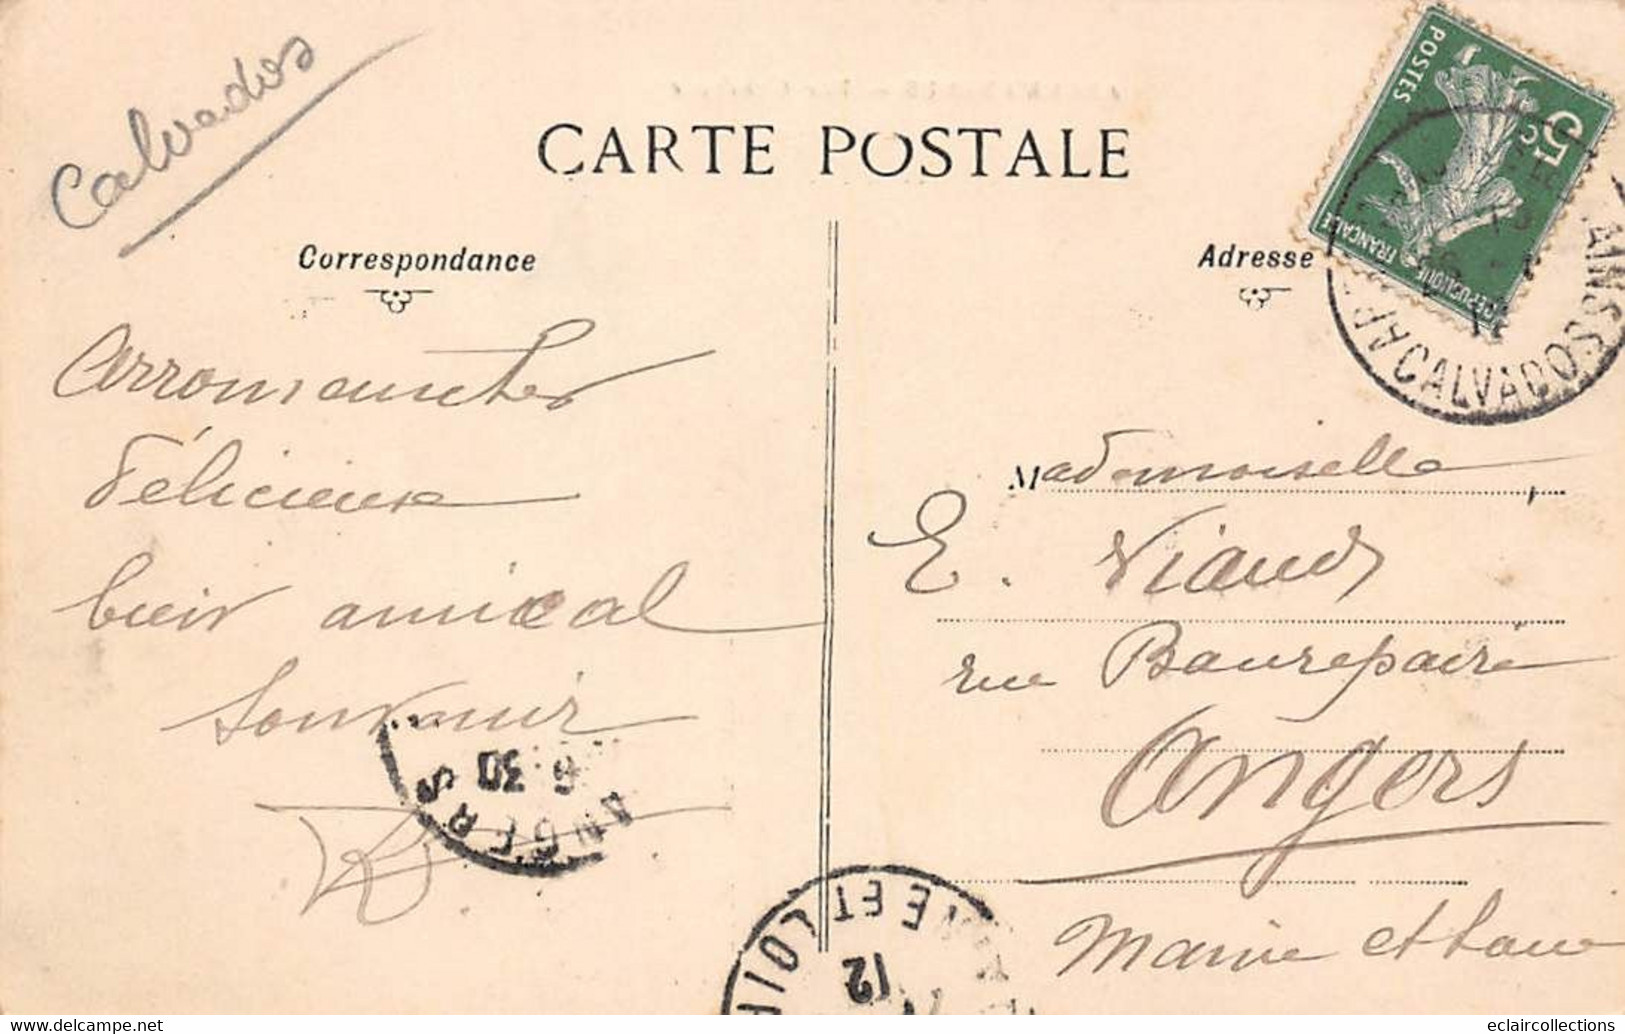 Calvados
CARTE POSTALE
Correspondance
Adresse
POSTES
5c
REPUBLIQUE FRANÇAISE
CALVADOS
Arromanches
délicieux
bien amical
Souvenir
ANGERS
6 30
Mademoiselle
E. Viaud
rue Beaurepaire
Angers
Maine et Loire
ET LOIR
12
www.delcampe.net
eclaircollections